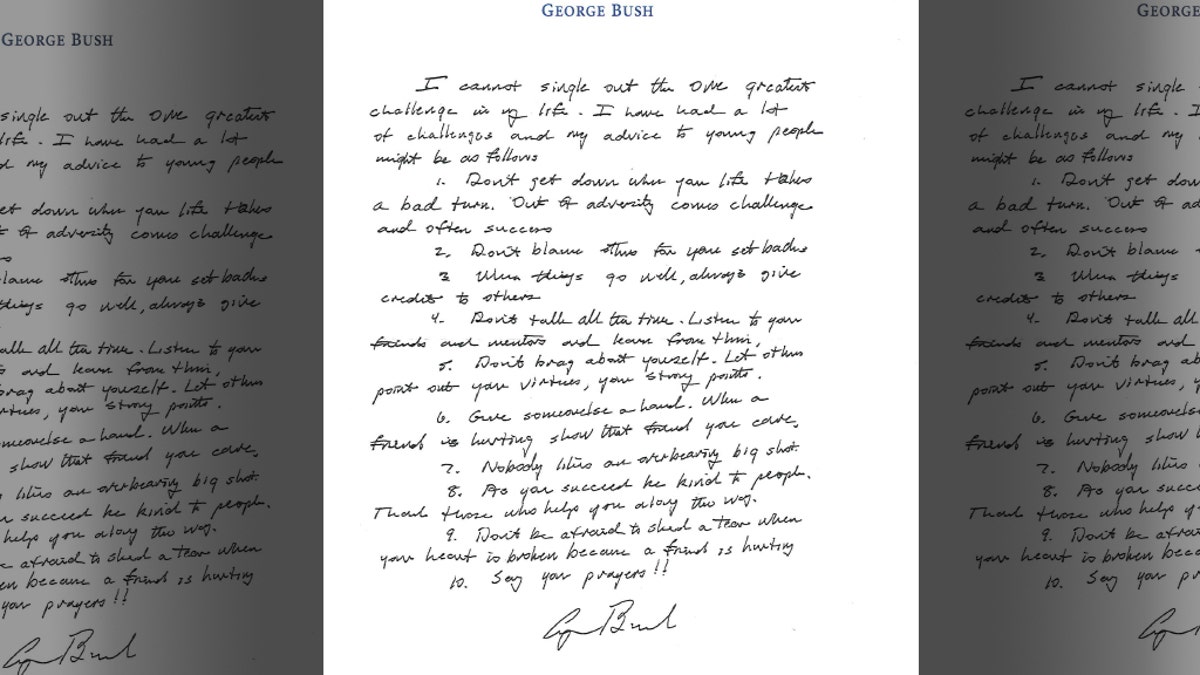 GEORGE BUSH
I cannot single out the one greatest
challenge in my life. I have had a lot
of challenges and my advice to young people
might be as follows
1. Don't get down when your life takes
a bad turn. Out of adversity comes challenge
and often success
2. Don't blame others for your setbacks
3 When things go well, always give
credits to others
4. Don't talk all the time. Listen to your
friends and mentors and learn from them,
5. Don't brag about yourself. Let others
point out your virtues, your strong points.
6. Give someone else a hand. When a
friend is hurting show that friend you care.
7. Nobody likes an overbearing big shot.
8. As you succeed be kind to people.
Thank those who help you along the way.
9. Don't be afraid to shed a tear when
your heart is broken because a friend is hurting
10. Say your prayers!!
George Bush